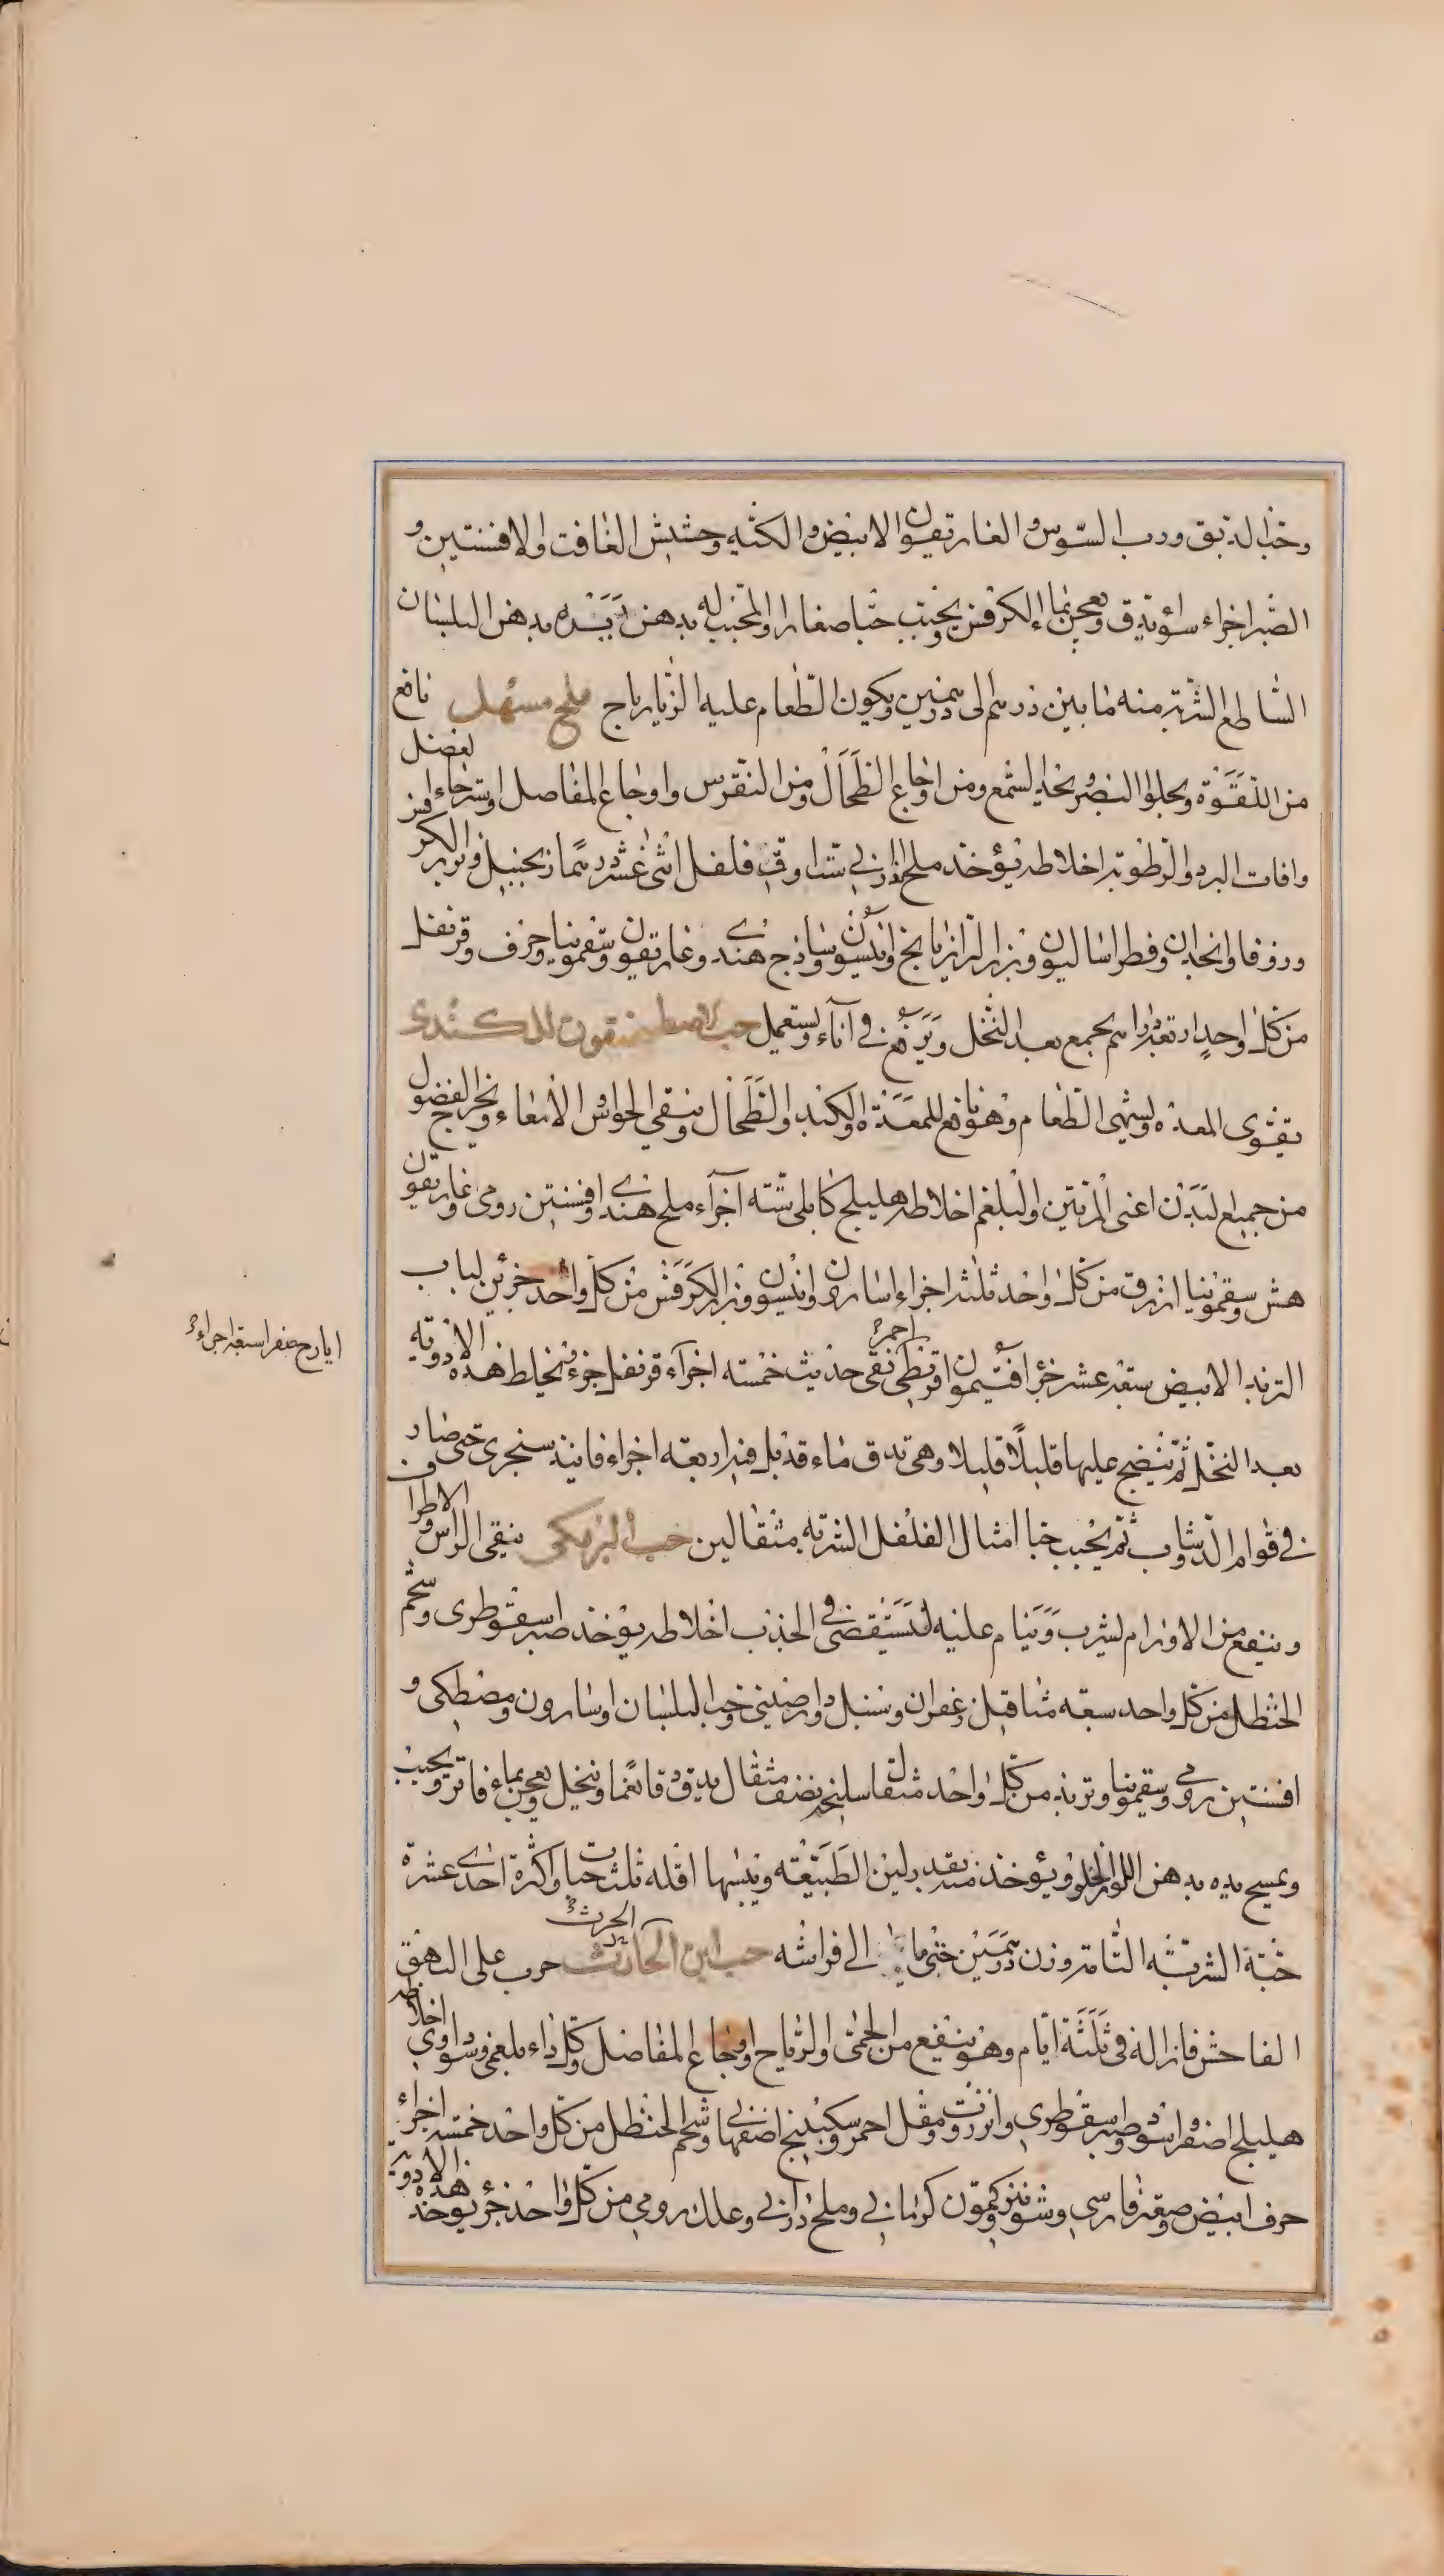 وحب الدبق ورب السوس والغاريقون الابيض والكثيه وحشيش الغافت والافسنتين و
الصبر اجزاء سواء يدق ويعجن بماء الكرفس ويحبب حبا صغارا والمحبب له يدهن يده بدهن البلسان
الساطع الشربة منه ما بين درهم الى درهمين ويكون الطعام عليه الزيارباج ملح مسهل نافع
من اللقوة ويجلوا البصر ويحد السمع ومن اوجاع الطحال ومن النقرس واوجاع المفاصل واسترخاء لفضل
وافات البرد والرطوبة اخلاطه يؤخذ ملح اندراني ست اواق فلفل اثنى عشر درهما زنجبيل وبزر الكرفس
وزوفا وانجدان وفطراساليون وبزر الرازيانج وانيسون وساذج هندي وغاريقون وسقمونيا وحرف وقرنفل
من كل واحد اربعة دراهم يجمع بعد النخل ويرفع في اناء ويستعمل حب الاصطمخيقون للكندى
يقوى المعدة ويشهى الطعام وهو نافع للمعدة والكبد والطحال وينقي الحواس الامعاء ويخرج الفضول
من جميع البدن اعنى المرتين والبلغم اخلاطه هليلج كابلي ستة اجزاء ملح هندي وافسنتين رومي وغاريقون
هش وسقمونيا ازرق من كل واحد ثلثة اجزاء اسارون وانيسون وبزر الكرفس من كل واحد جزئين لباب
التربد الابيض سبعة عشر جزء افتيمون اقريطى نقى حديث خمسة اجزاء قرنفل جزء فيخلط هذه الادوية
احمر
ايارج صفر اسبعة اجزاء
بعد النخل ثم ينضج عليها قليلا قليلا وهي تدق ماء قد بل فيه اربعة اجزاء فانيذ سنجرى حتى صار
في قوام الدوشاب ثم يحبب حبا امثال الفلفل الشربة مثقالين حب البرمكى ينقى الراس والاطراف
وينفع من الاورام يشرب وينام عليه ليستقضى في الجذب اخلاطه يؤخذ صبر اسقوطرى وشحم
الحنظل من كل واحد سبعة مثاقيل زعفران وسنبل ودارصيني وحب البلسان واسارون ومصطكى و
افسنتين رومي وسقمونيا وتربد من كل واحد مثقال سليخة نصف مثقال يدق دقا نعما وينخل ويعجن بماء فاتر ويحبب
ويمسح يده بدهن اللوز الحلو ويؤخذ منه بقدر لين الطبيعة ويبسها اقله ثلث حبات واكثره احدى عشرة
حبة الشربة التامة وزن درهمين حتى ما الى فراشه حب ابن الحارث جرب على البهق
الحرث
الفاحش فازاله في ثلثة ايام وهو ينفع من الحمى والرياح واوجاع المفاصل وكل داء بلغمي وسوداوي اخلاطه
هليلج اصفر واسود وصبر سقوطري وانزروت ومقل احمر وسكبينج اصفهاني وشحم الحنظل من كل واحد خمسة اجزاء
حرف ابيض وصعتر فارسي وشونيز وكمون كرماني وملح دراني وعلك رومي من كل واحد جزء يؤخذ هذه الادوية